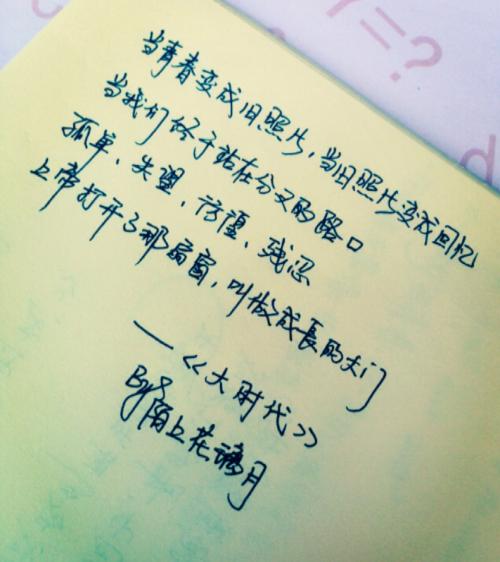 当青春变成旧照片，当旧照片变成回忆
当我们终于站在分叉的路口
孤单、失望、彷徨、残忍
上帝打开了那扇窗，叫做成長的大门
——《大时代》
By 陌上花
月
Y=?